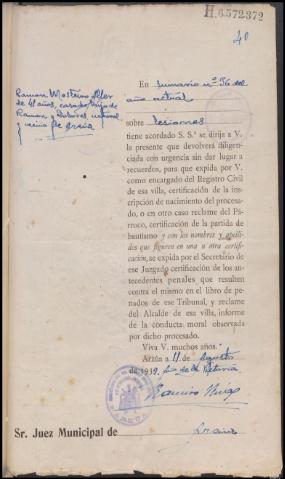 H.6.572.372
40
En sumario nº 56 del
año actual
Ramon Mosteiro
de 41 años, casado, hijo de
Ramon y Dolores, natural
y vecino de
sobre lesiones
tiene acordado S. S.ª se dirija a V.
la presente que devolverá diligen-
ciada con urgencia sin dar lugar a
recuerdos, para que expida por V.
como encargado del Registro Civil
de esa villa, certificación de la ins-
cripción de nacimiento del procesa-
do, o en otro caso reclame del Pá-
rroco, certificación de la partida de
bautismo y con los nombres y apelli-
dos que figuren en una u otra certifi-
cación, se expida por el Secretario de
ese Juzgado certificación de los an-
tecedentes penales que resulten
contra el mismo en el libro de pe-
nados de ese Tribunal, y reclame
del Alcalde de esa villa, informe
de la conducta moral observada
por dicho procesado.
Viva V. muchos años.
Arzúa a 11 de Agosto
de 1939. Año de la Victoria
Ramiro
Sr. Juez Municipal de